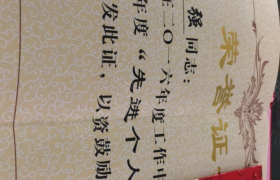 荣誉证
强同志：
二〇一六年度工作中
年度“先进个人
发此证，以资鼓励